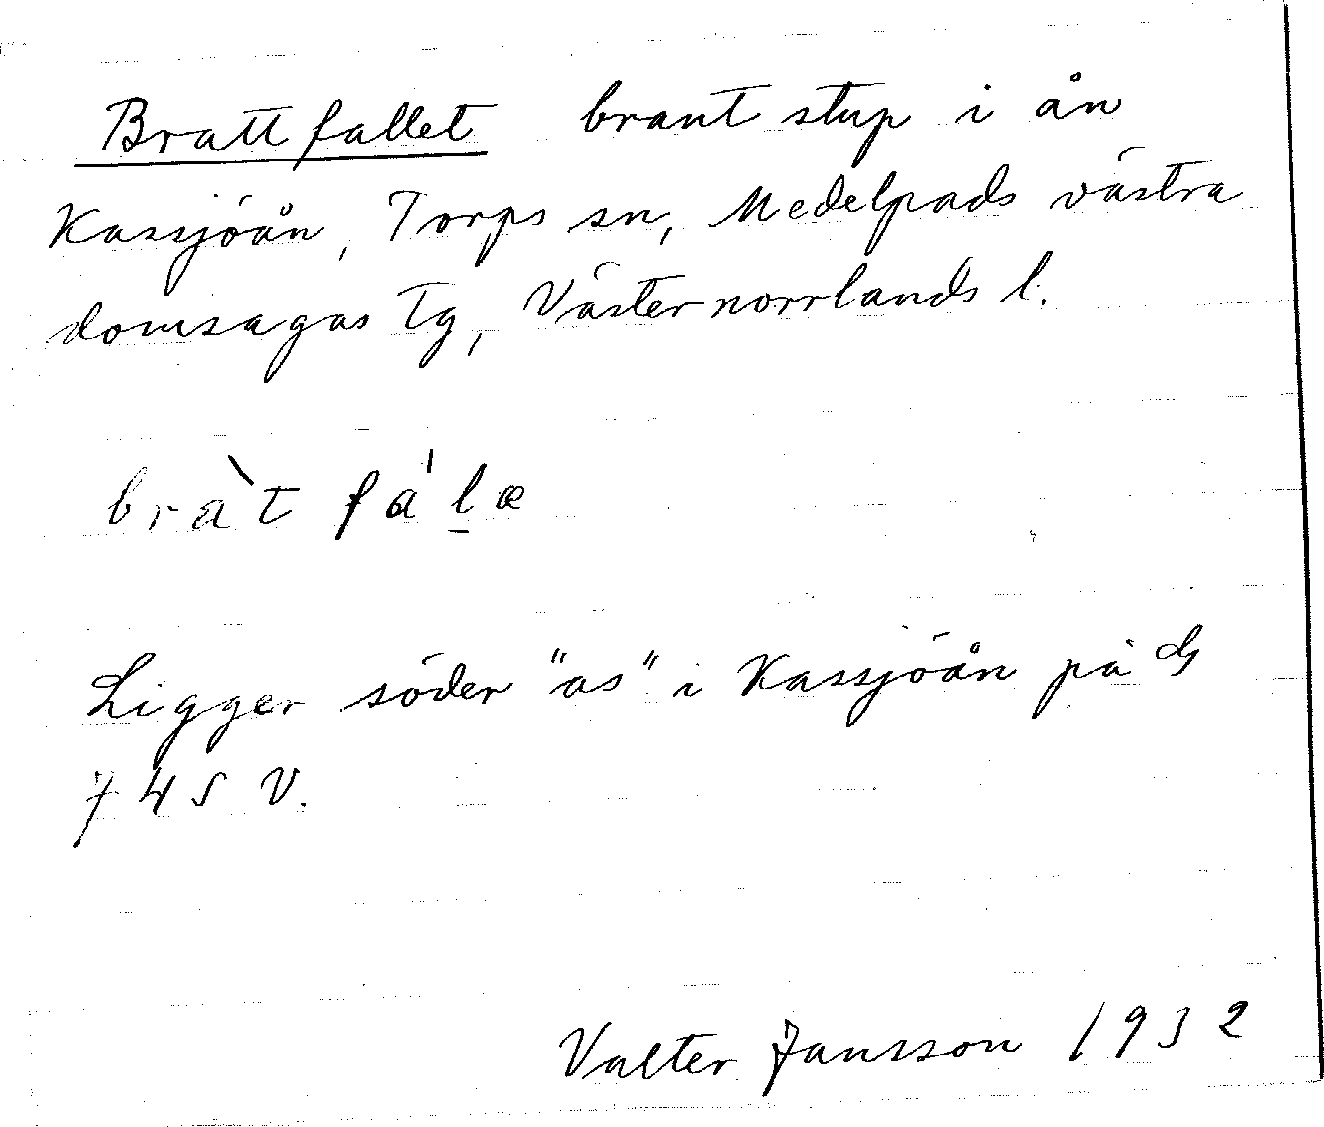 Brattfallet brant stup i ån
Kassjöån, Torps sn, Medelpads västra
domsagas Tg, Västernorrlands l.
bràt fa'læ
Ligger söder "as" i Kassjöån på
74 S V.
Valter Jansson 1932